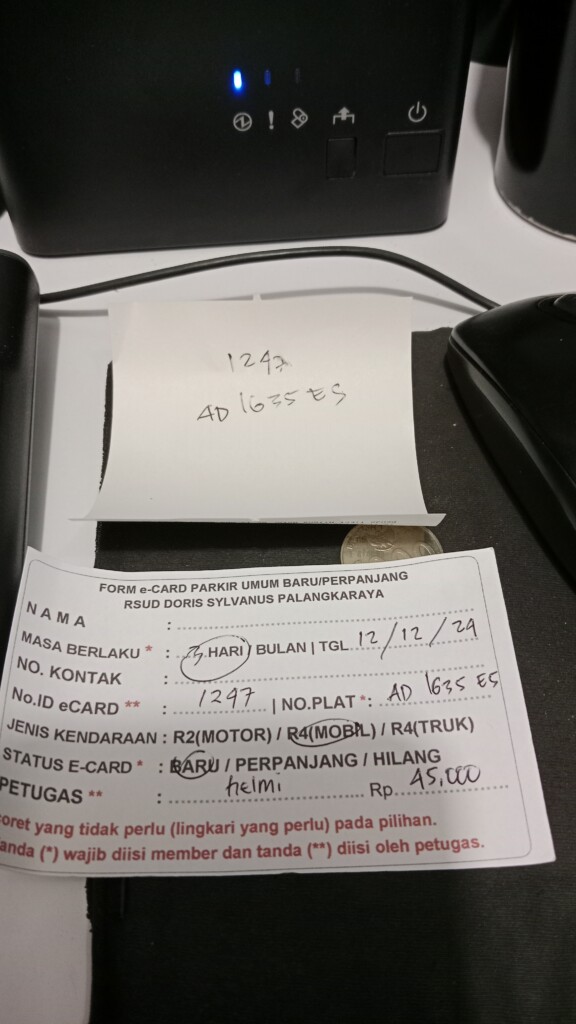 1247
AD 1635 ES
FORM e-CARD PARKIR UMUM BARU/PERPANJANG
RSUD DORIS SYLVANUS PALANGKARAYA
NAMA :
MASA BERLAKU * : 3 HARI / BULAN | TGL 12/12/24
NO. KONTAK :
No.ID eCARD ** : 1247 | NO.PLAT *: AD 1635 ES
JENIS KENDARAAN : R2(MOTOR) / R4(MOBIL) / R4(TRUK)
STATUS E-CARD * : BARU / PERPANJANG / HILANG
PETUGAS ** : helmi Rp. 45,000
coret yang tidak perlu (lingkari yang perlu) pada pilihan.
anda (*) wajib diisi member dan tanda (**) diisi oleh petugas.